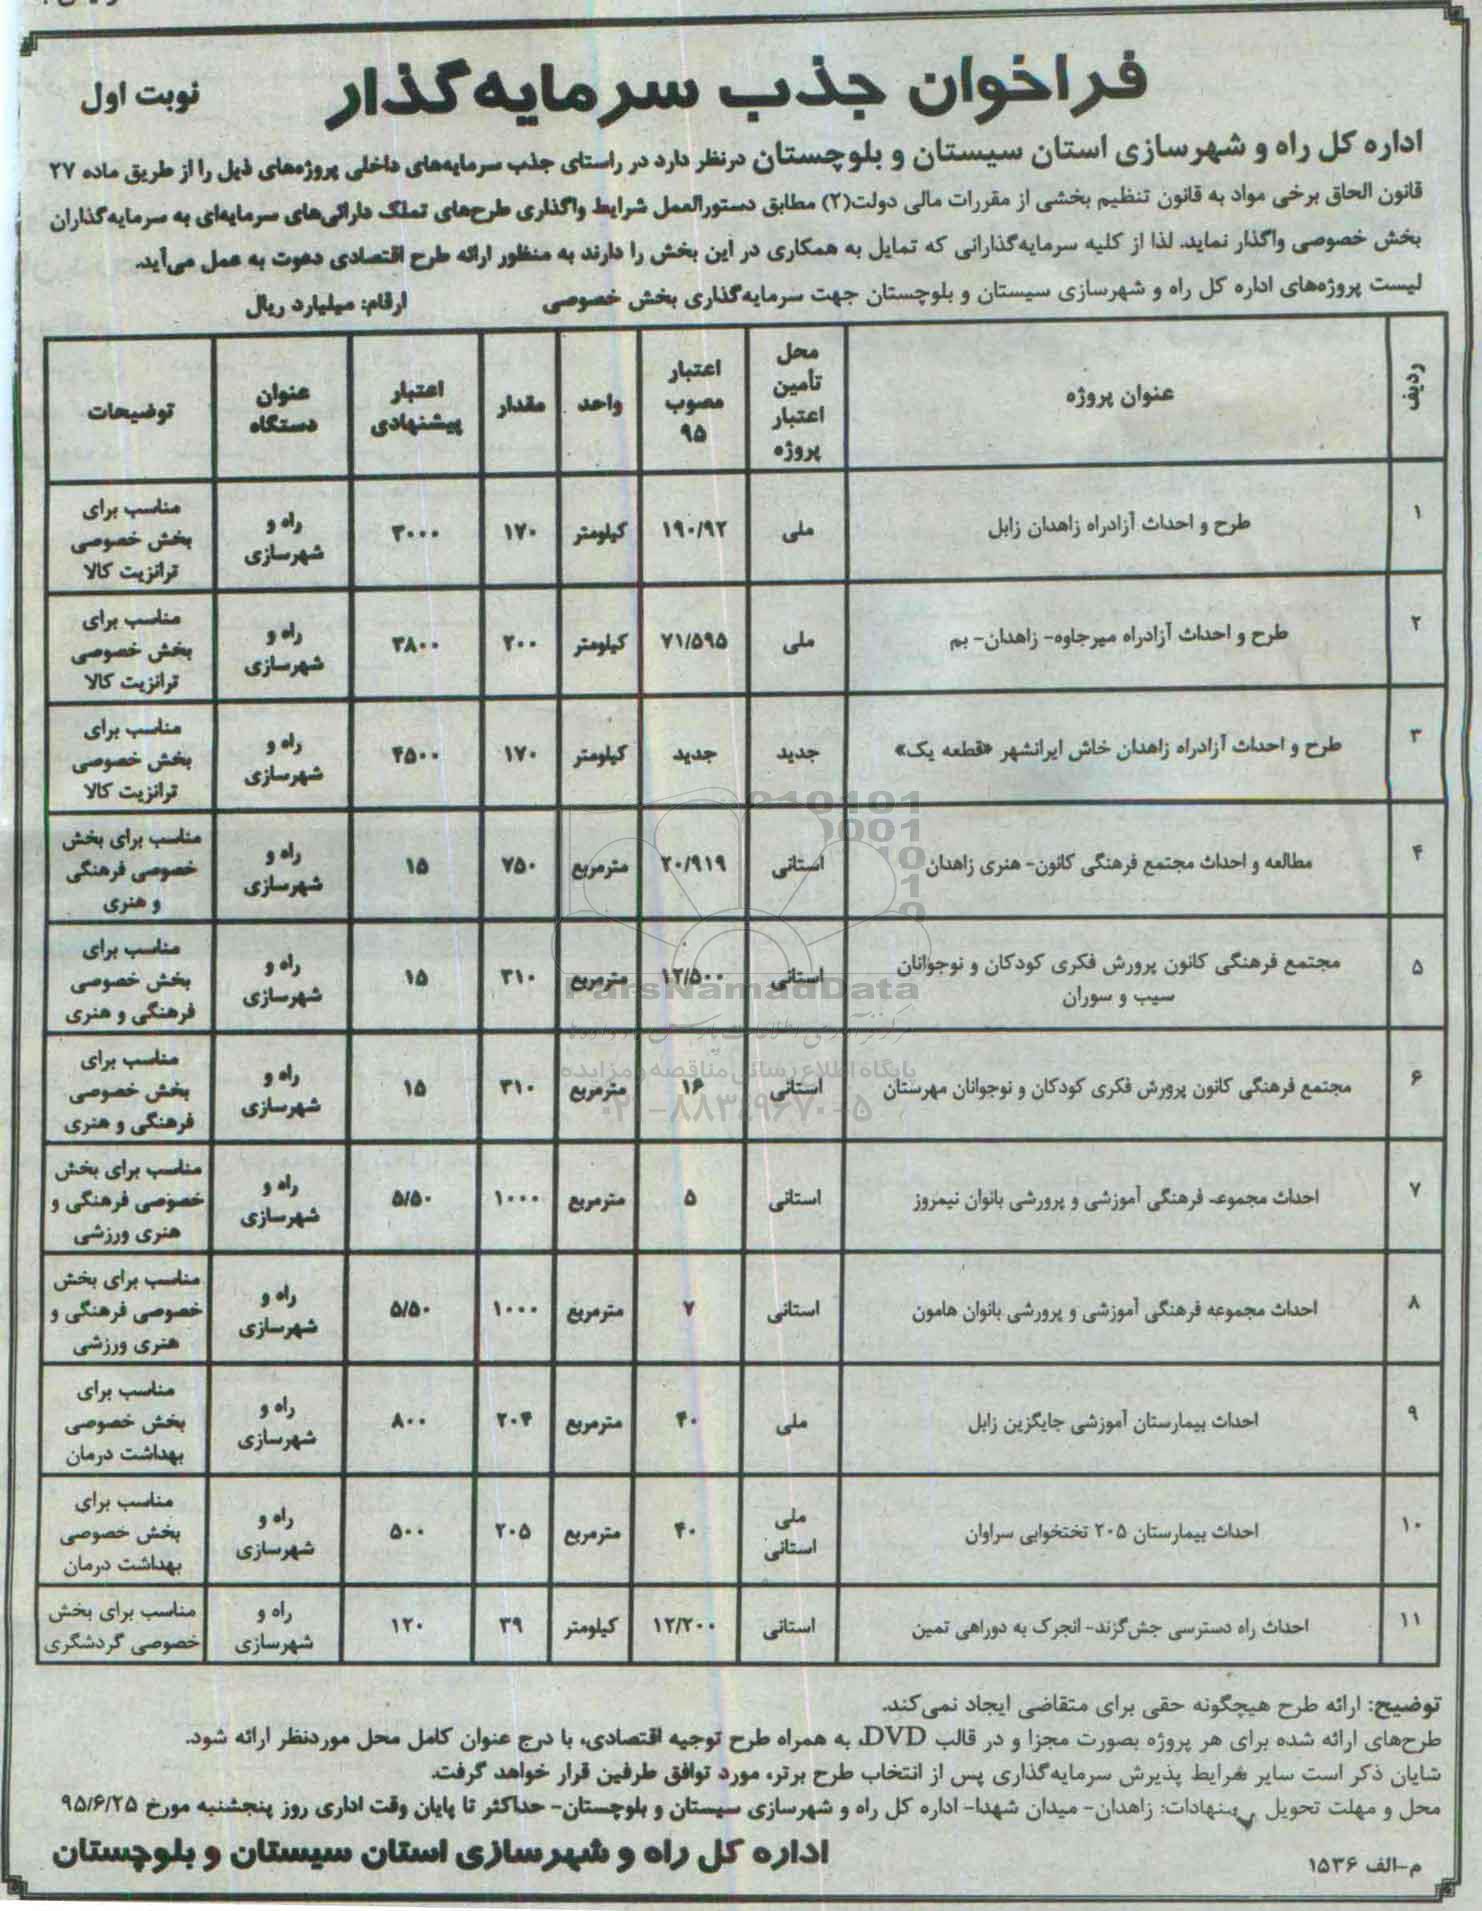 فراخوان جذب سرمایه‌گذار
نوبت اول
اداره کل راه و شهرسازی استان سیستان و بلوچستان درنظر دارد در راستای جذب سرمایه‌های داخلی پروژه‌های ذیل را از طریق ماده ۲۷
قانون الحاق برخی مواد به قانون تنظیم بخشی از مقررات مالی دولت(۲) مطابق دستورالعمل شرایط واگذاری طرح‌های تملک دارائی‌های سرمایه‌ای به سرمایه‌گذاران
بخش خصوصی واگذار نماید. لذا از کلیه سرمایه‌گذارانی که تمایل به همکاری در این بخش را دارند به منظور ارائه طرح اقتصادی دعوت به عمل می‌آید.
لیست پروژه‌های اداره کل راه و شهرسازی سیستان و بلوچستان جهت سرمایه‌گذاری بخش خصوصی ارقام: میلیارد ریال
ردیف عنوان پروژه محل تأمین اعتبار پروژه اعتبار مصوب ۹۵ واحد مقدار اعتبار پیشنهادی عنوان دستگاه توضیحات
۱ طرح و احداث آزادراه زاهدان زابل ملی ۱۹۰/۹۲ کیلومتر ۱۷۰ ۳۰۰۰ راه و شهرسازی مناسب برای بخش خصوصی ترانزیت کالا
۲ طرح و احداث آزادراه میرجاوه- زاهدان- بم ملی ۷۱/۵۹۵ کیلومتر ۲۰۰ ۳۸۰۰ راه و شهرسازی مناسب برای بخش خصوصی ترانزیت کالا
۳ طرح و احداث آزادراه زاهدان خاش ایرانشهر «قطعه یک» جدید جدید کیلومتر ۱۷۰ ۴۵۰۰ راه و شهرسازی مناسب برای بخش خصوصی ترانزیت کالا
۴ مطالعه و احداث مجتمع فرهنگی کانون- هنری زاهدان استانی ۲۰/۹۱۹ مترمربع ۷۵۰ ۱۵ راه و شهرسازی مناسب برای بخش خصوصی فرهنگی و هنری
۵ مجتمع فرهنگی کانون پرورش فکری کودکان و نوجوانان سیب و سوران استانی ۱۲/۵۰۰ مترمربع ۳۱۰ ۱۵ راه و شهرسازی مناسب برای بخش خصوصی فرهنگی و هنری
۶ مجتمع فرهنگی کانون پرورش فکری کودکان و نوجوانان مهرستان استانی ۱۶ مترمربع ۳۱۰ ۱۵ راه و شهرسازی مناسب برای بخش خصوصی فرهنگی و هنری
۷ احداث مجموعه فرهنگی آموزشی و پرورشی بانوان نیمروز استانی ۵ مترمربع ۱۰۰۰ ۵/۵۰ راه و شهرسازی مناسب برای بخش خصوصی فرهنگی و هنری ورزشی
۸ احداث مجموعه فرهنگی آموزشی و پرورشی بانوان هامون استانی ۷ مترمربع ۱۰۰۰ ۵/۵۰ راه و شهرسازی مناسب برای بخش خصوصی فرهنگی و هنری ورزشی
۹ احداث بیمارستان آموزشی جایگزین زابل ملی ۴۰ مترمربع ۲۰۴ ۸۰۰ راه و شهرسازی مناسب برای بخش خصوصی بهداشت درمان
۱۰ احداث بیمارستان ۲۰۵ تختخوابی سراوان ملی استانی ۴۰ مترمربع ۲۰۵ ۵۰۰ راه و شهرسازی مناسب برای بخش خصوصی بهداشت درمان
۱۱ احداث راه دسترسی جش‌گزند- انجرک به دوراهی تمین استانی ۱۲/۲۰۰ کیلومتر ۳۹ ۱۲۰ راه و شهرسازی مناسب برای بخش خصوصی گردشگری
ParsNamadData
پایگاه اطلاع رسانی مناقصه و مزایده
۰۲۱-۸۸۳۴۹۶۷۰-۵
توضیح: ارائه طرح هیچگونه حقی برای متقاضی ایجاد نمی‌کند.
طرح‌های ارائه شده برای هر پروژه بصورت مجزا و در قالب DVD، به همراه طرح توجیه اقتصادی، با درج عنوان کامل محل موردنظر ارائه شود.
شایان ذکر است سایر شرایط پذیرش سرمایه‌گذاری پس از انتخاب طرح برتر، مورد توافق طرفین قرار خواهد گرفت.
محل و مهلت تحویل پیشنهادات: زاهدان- میدان شهدا- اداره کل راه و شهرسازی سیستان و بلوچستان- حداکثر تا پایان وقت اداری روز پنجشنبه مورخ ۹۵/۶/۲۵
اداره کل راه و شهرسازی استان سیستان و بلوچستان
م-الف ۱۵۳۶